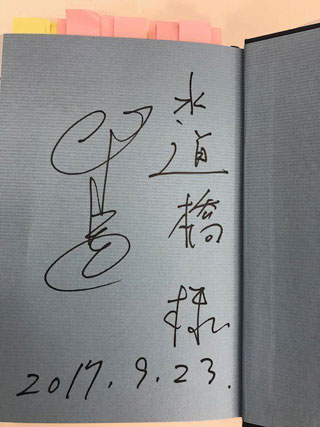 水道橋様
2017.9.23.